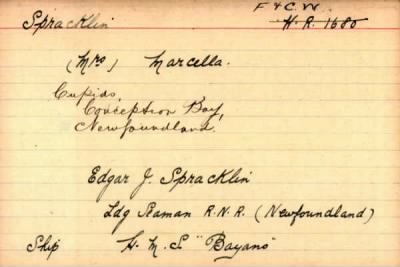 F & C. W.
Spracklin H. R. 1680
(Mrs) Marcella.
Cupids,
Conception Bay,
Newfoundland.
Edgar J. Spracklin
Ldg Seaman R.N.R. (Newfoundland)
Ship H. M. S "Bayano"